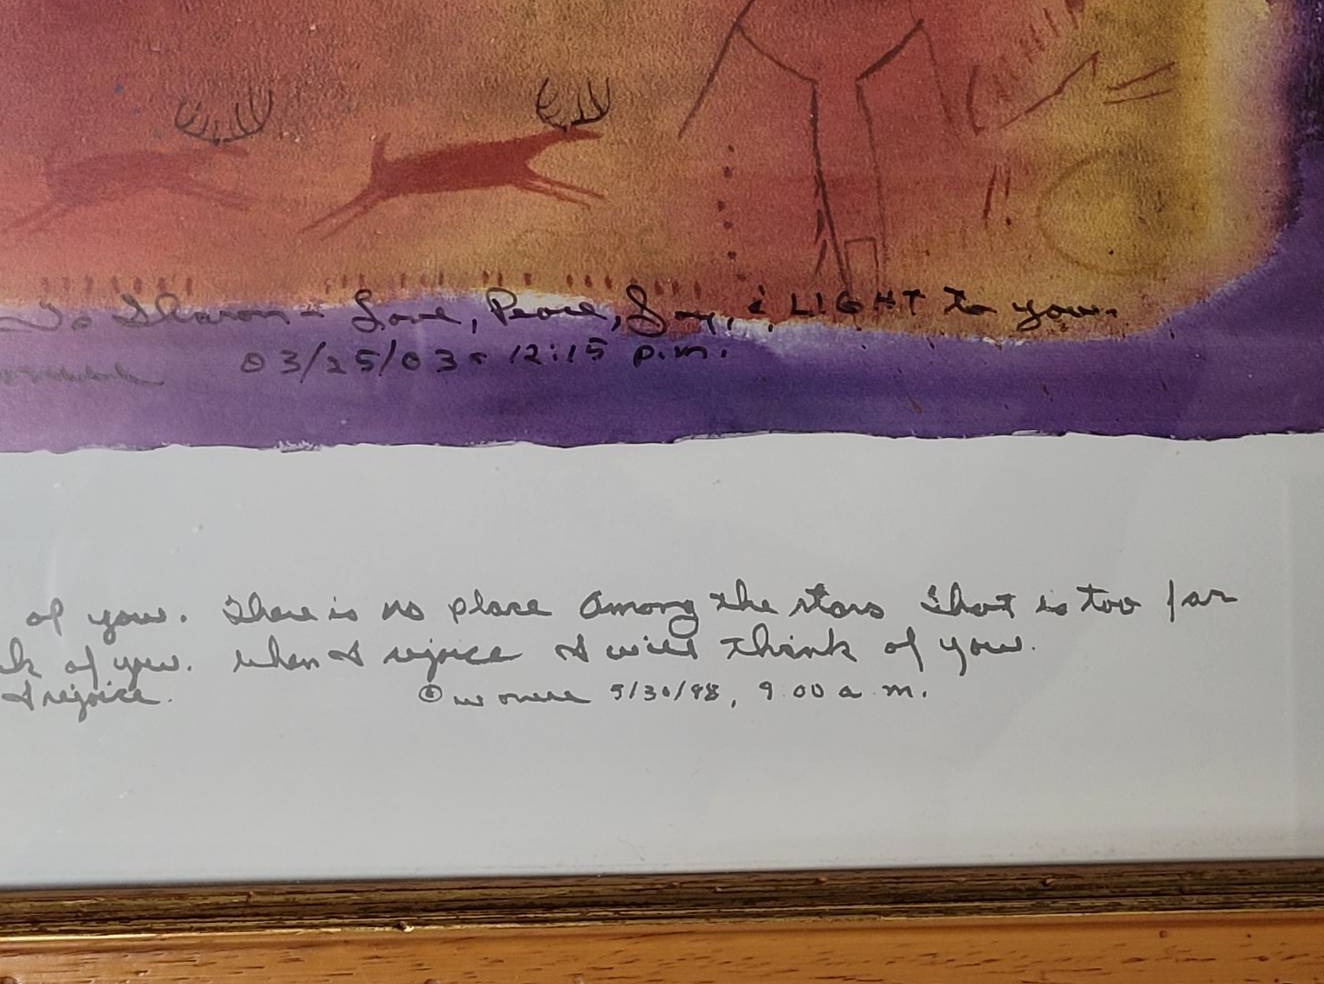 To Sharon - Love, Peace, Joy, & LIGHT to you.
03/25/03 - 12:15 p.m.
of you. There is no place among the stars that is too far
k of you. When I rejoice I will think of you.
I rejoice. 9:00 a.m.